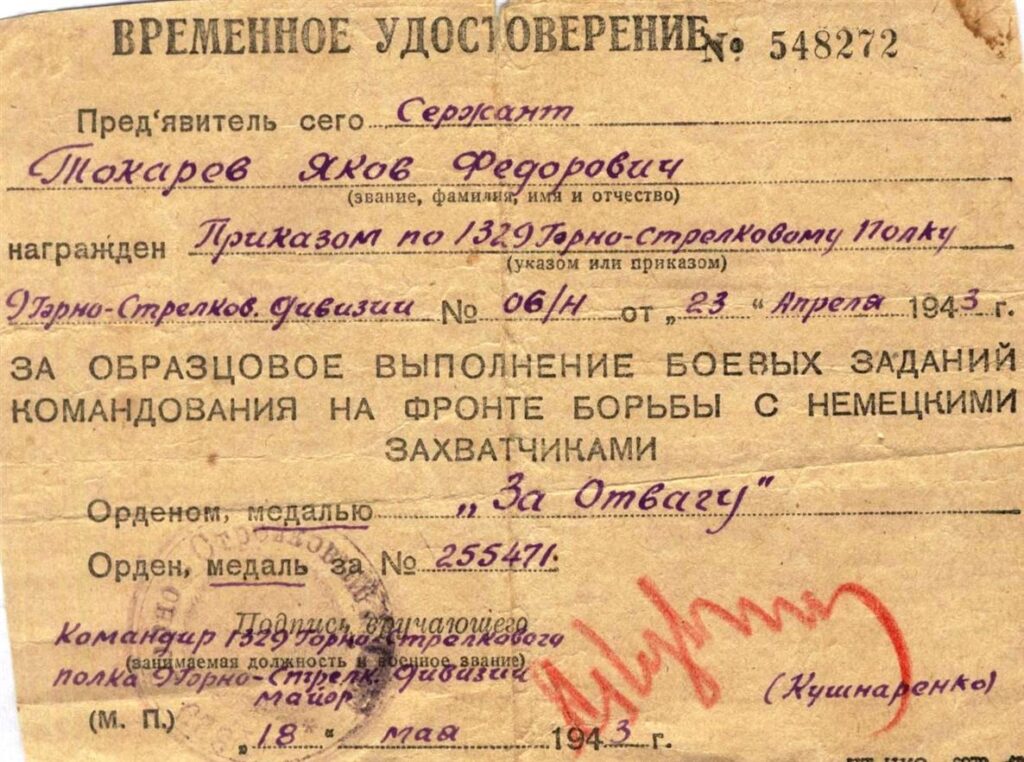 ВРЕМЕННОЕ УДОСТОВЕРЕНИЕ № 548272
Пред'явитель сего Сержант
Токарев Яков Федорович
(звание, фамилия, имя и отчество)
награжден Приказом по 1329 Горно-Стрелковому Полку
(указом или приказом)
9 Горно-Стрелков. дивизии № 06/Н от „23“ Апреля 1943 г.
ЗА ОБРАЗЦОВОЕ ВЫПОЛНЕНИЕ БОЕВЫХ ЗАДАНИЙ
КОМАНДОВАНИЯ НА ФРОНТЕ БОРЬБЫ С НЕМЕЦКИМИ
ЗАХВАТЧИКАМИ
Орденом, медалью „За Отвагу"
Орден, медаль за № 255471.
Подпись вручающего
Командир 1329 Горно-Стрелкового
(занимаемая должность и военное звание)
полка 9 Горно-Стрелк. дивизии
майор (Кушнаренко)
(М. П.)
„18“ мая 1943 г.